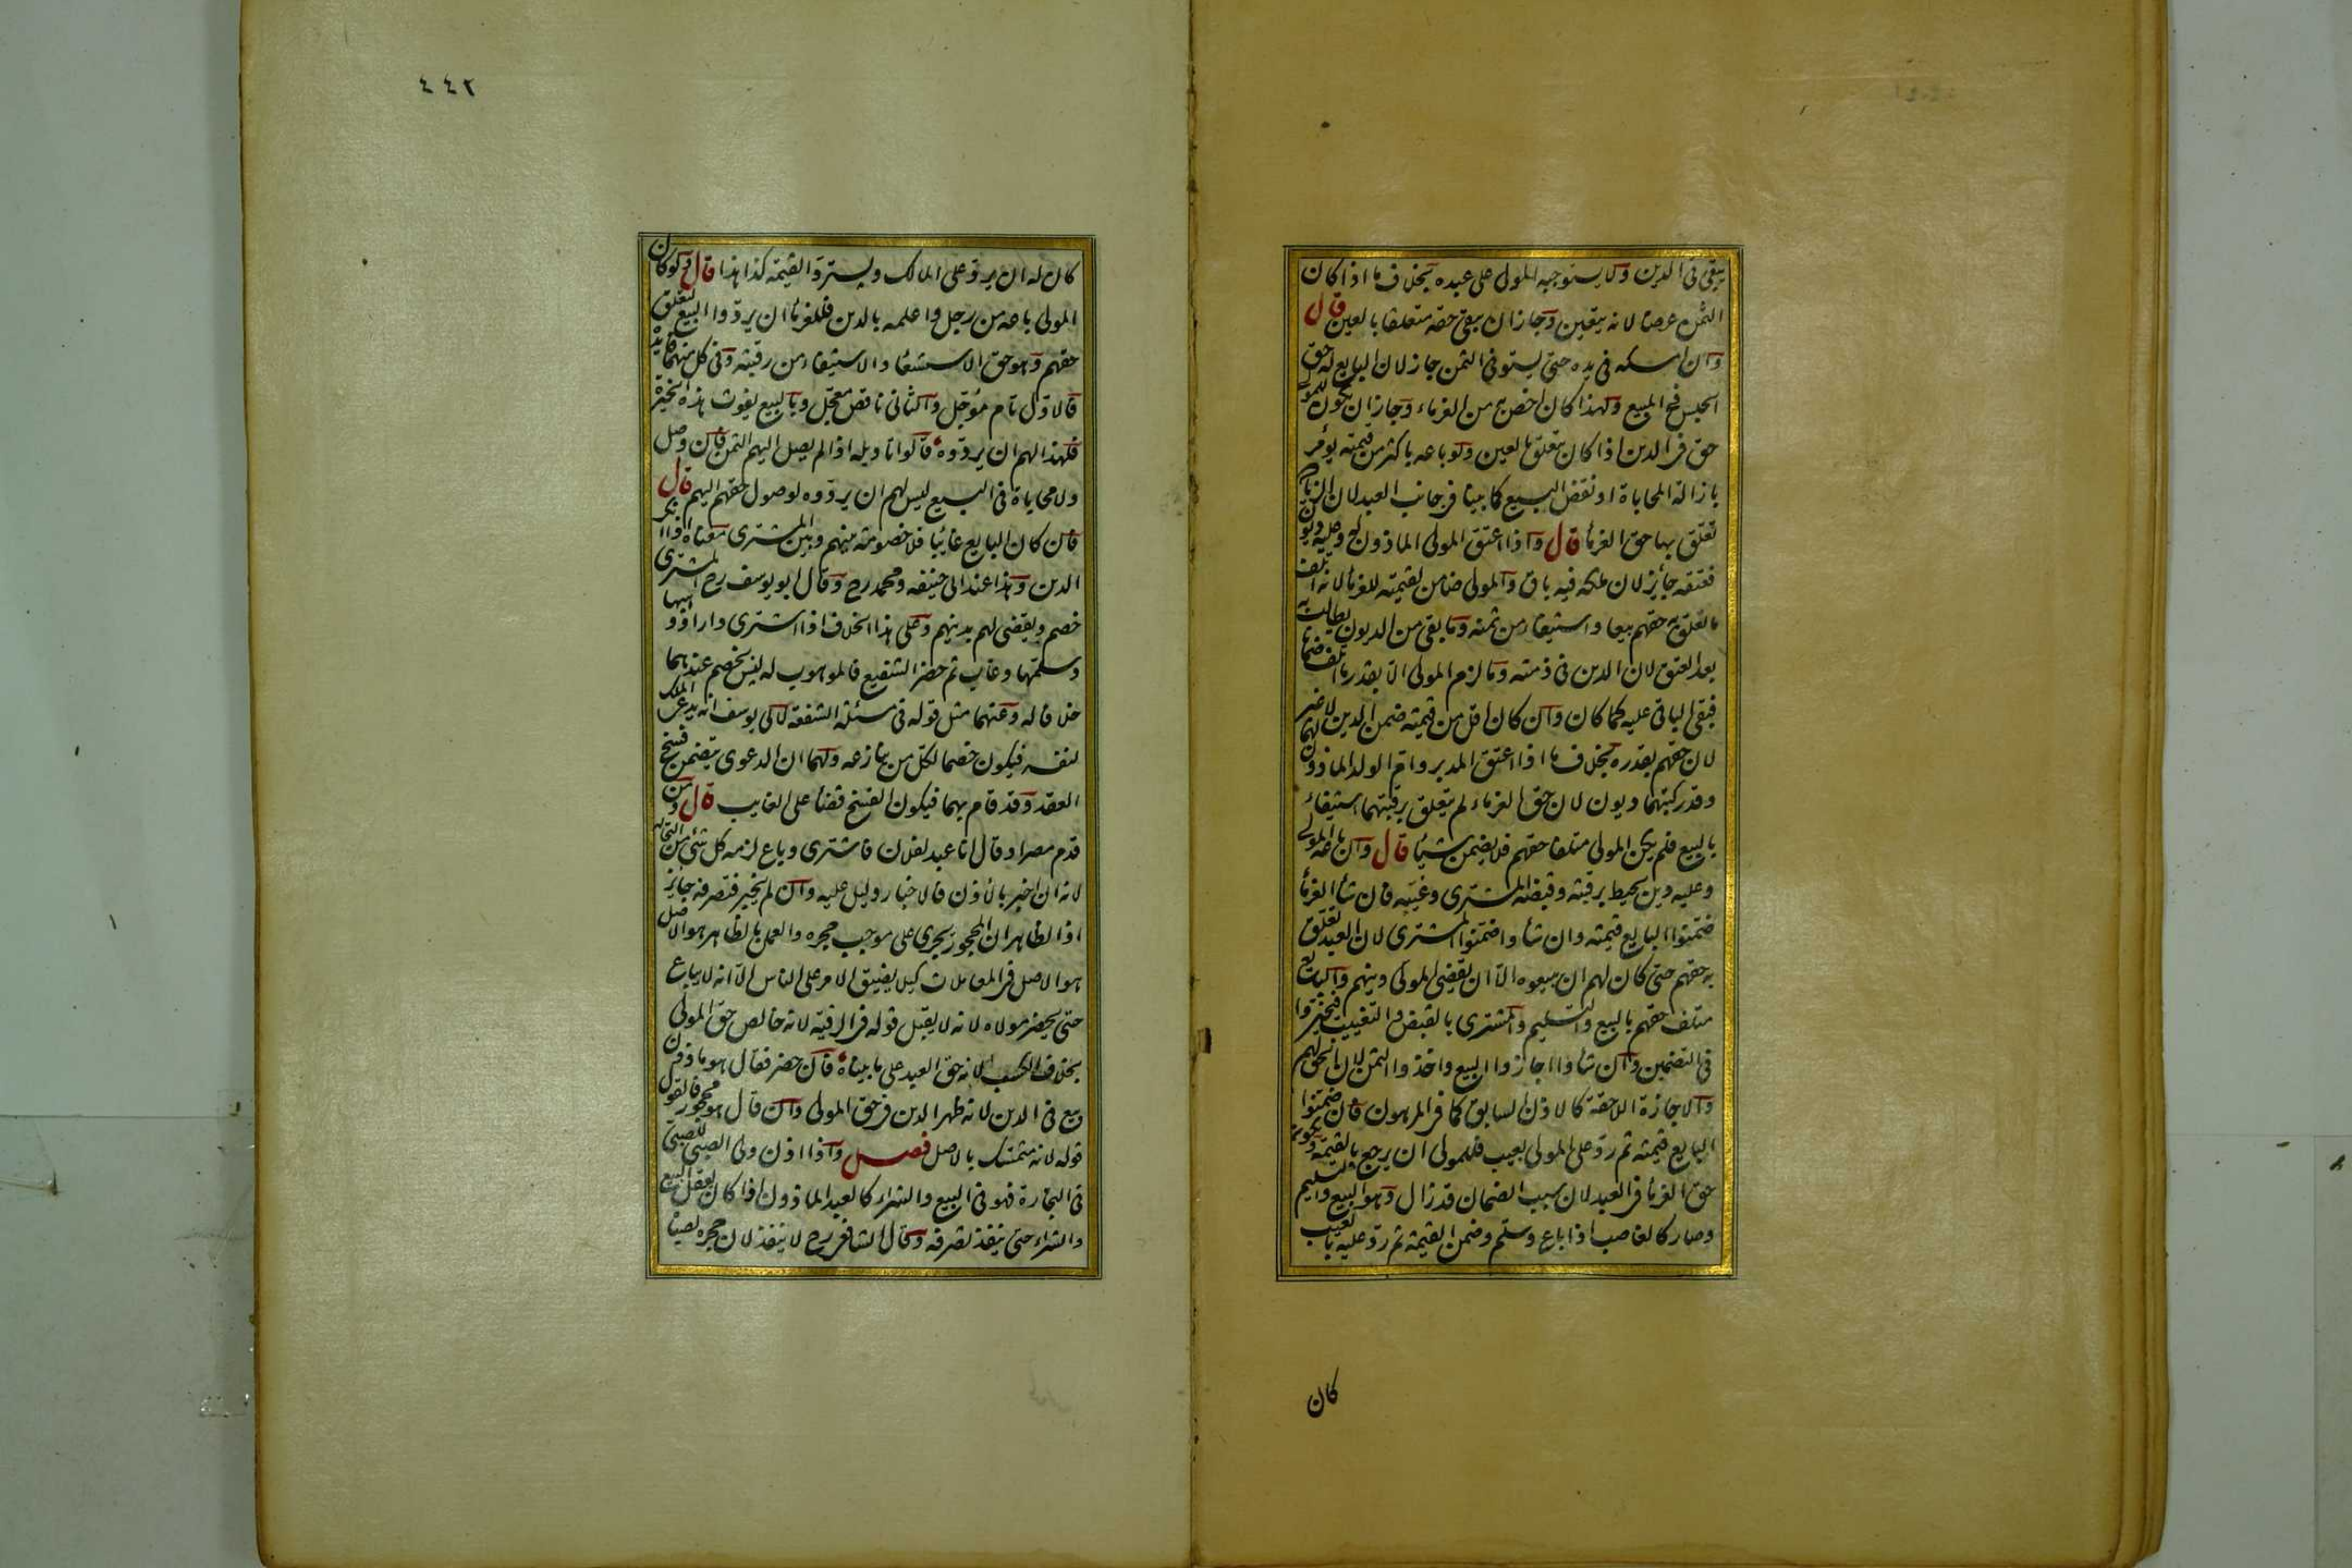 يبقى فى الدين ولا يستوجبه المولى على عبده بخلاف ما اذا كان
الثمن عرضا لانه يتعين وجاز ان يبقى حقه متعلقا بالعين قال
وان امسكه فى يده حتى يستوفى الثمن جاز لان البايع له حق
الحبس فى المبيع ولهذا كان اخص به من الغرماء وجاز ان يكون للمولى
حق فى الدين اذا كان يتعلق بالعين ولو باعه باكثر من قيمته يؤمر
بازالة المحاباة او نقض البيع كما بينا فى جانب العبد لان الزيادة
تعلق بها حق الغرماء قال واذا اعتق المولى الماذون له وعليه ديون
فعتقه جائز لان ملكه فيه باق والمولى ضامن لقيمته للغرماء لانه اتلف
ما تعلق به حقهم بيعا واستيفاء من ثمنه وما بقى من الديون يطالب به
بعد العتق لان الدين فى ذمته وما لزم المولى الا بقدر ما اتلف ضمانا
فبقى الباقى عليه كما كان وان كان اقل من قيمته ضمن الدين لا غير
لان حقهم بقدره بخلاف ما اذا اعتق المدبر وام الولد الماذون لهما
وقد ركبتهما ديون لان حق الغرماء لم يتعلق برقبتهما استيفاء
بالبيع فلم يكن المولى متلفا حقهم فلا يضمن شيئا قال وان باعه المولى
وعليه دين يحيط برقبته وقبضه المشترى وغيبه فان شاء الغرماء
ضمنوا البايع قيمته وان شاءوا ضمنوا المشترى لان العبد تعلق
به حقهم حتى كان لهم ان يبيعوه الا ان يقضى المولى دينهم والبايع
متلف حقهم بالبيع والتسليم والمشترى بالقبض والتغييب فيخيروا
فى التضمين وان شاءوا اجازوا البيع واخذوا الثمن لان الحق لهم
والاجازة اللاحقة كالاذن السابق كما فى المرهون فان ضمنوا
البايع قيمته ثم رد على المولى بعيب فللمولى ان يرجع بالقيمة ويكون
حق الغرماء فى العبد لان سبب الضمان قد زال وهو البيع والتسليم
وصار كالغاصب اذا باع وسلم وضمن القيمة ثم رد عليه بالعيب
كان
٤٤٢
كان له ان يرد على المالك ويسترد القيمة كذا هذا قال ولو كان
المولى باعه من رجل واعلمه بالدين فللغرماء ان يردوا البيع لتعلق
حقهم وهو حق الاستسعاء والاستيفاء من رقبته وفى كل منهما فايدة
فالاول تام مؤجل والثانى ناقص معجل وبالبيع يفوت هذه الخيرة
فلهذا لهم ان يردوه قالوا تاويله اذا لم يصل اليهم الثمن فان وصل
ولا محاباة فى البيع ليس لهم ان يردوه لوصول حقهم اليهم قال
فان كان البايع غائبا فلا خصومة بينهم وبين المشترى معناه اذا انكر
الدين وهذا عند ابى حنيفه ومحمد رح وقال ابو يوسف رح المشترى
خصم ويقضى لهم بدينهم وعلى هذا الخلاف اذا اشترى دارا ووهبها
وسلمها وغاب ثم حضر الشفيع فالموهوب له ليس بخصم عندهما
خلافا له وعنهما مثل قوله فى مسئلة الشفعة لابى يوسف انه يدعى الملك
لنفسه فيكون خصما لكل من ينازعه ولهما ان الدعوى يتضمن فسخ
العقد وقد قام بهما فيكون الفسخ قضاء على الغايب قال ومن
قدم مصرا وقال انا عبد لفلان فاشترى وباع لزمه كل شئ من التجارة
لانه ان اخبر بالاذن فالاخبار دليل عليه وان لم يخبر فتصرفه جائز
اذ الظاهر ان المحجور يجرى على موجب حجره والعمل بالظاهر هو الاصل
هو الاصل فى المعاملات كيلا يضيق الامر على الناس الا انه لا يباع
حتى يحضر مولاه لانه لا يقبل قوله فى الرقبة لانه خالص حق المولى
بخلاف الكسب لانه حق العبد على ما بيناه فان حضر فقال هو ماذون
بيع فى الدين لانه ظهر الدين فى حق المولى وان قال هو محجور فالقول
قوله لانه متمسك بالاصل فصل واذا اذن ولى الصبى للصبى
فى التجارة فهو فى البيع والشراء كالعبد الماذون اذا كان يعقل البيع
والشراء حتى ينفذ تصرفه وقال الشافعى رح لا ينفذ لان حجره لصباه